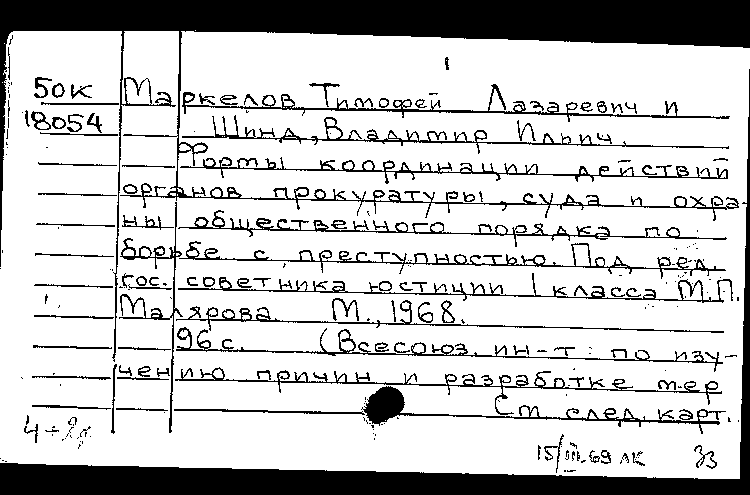 1
50К Маркелов, Тимофей Лазаревич и
18054 Шинд, Владимир Ильич.
Формы координации действий
органов прокуратуры, суда и охра-
ны общественного порядка по
борьбе с преступностью. Под ред.
гос. советника юстиции 1 класса М.П.
Малярова. М., 1968.
96 с. (Всесоюз. ин-т по изу-
чению причин и разработке мер
См. след. карт.
15/III.69 ЛК 33